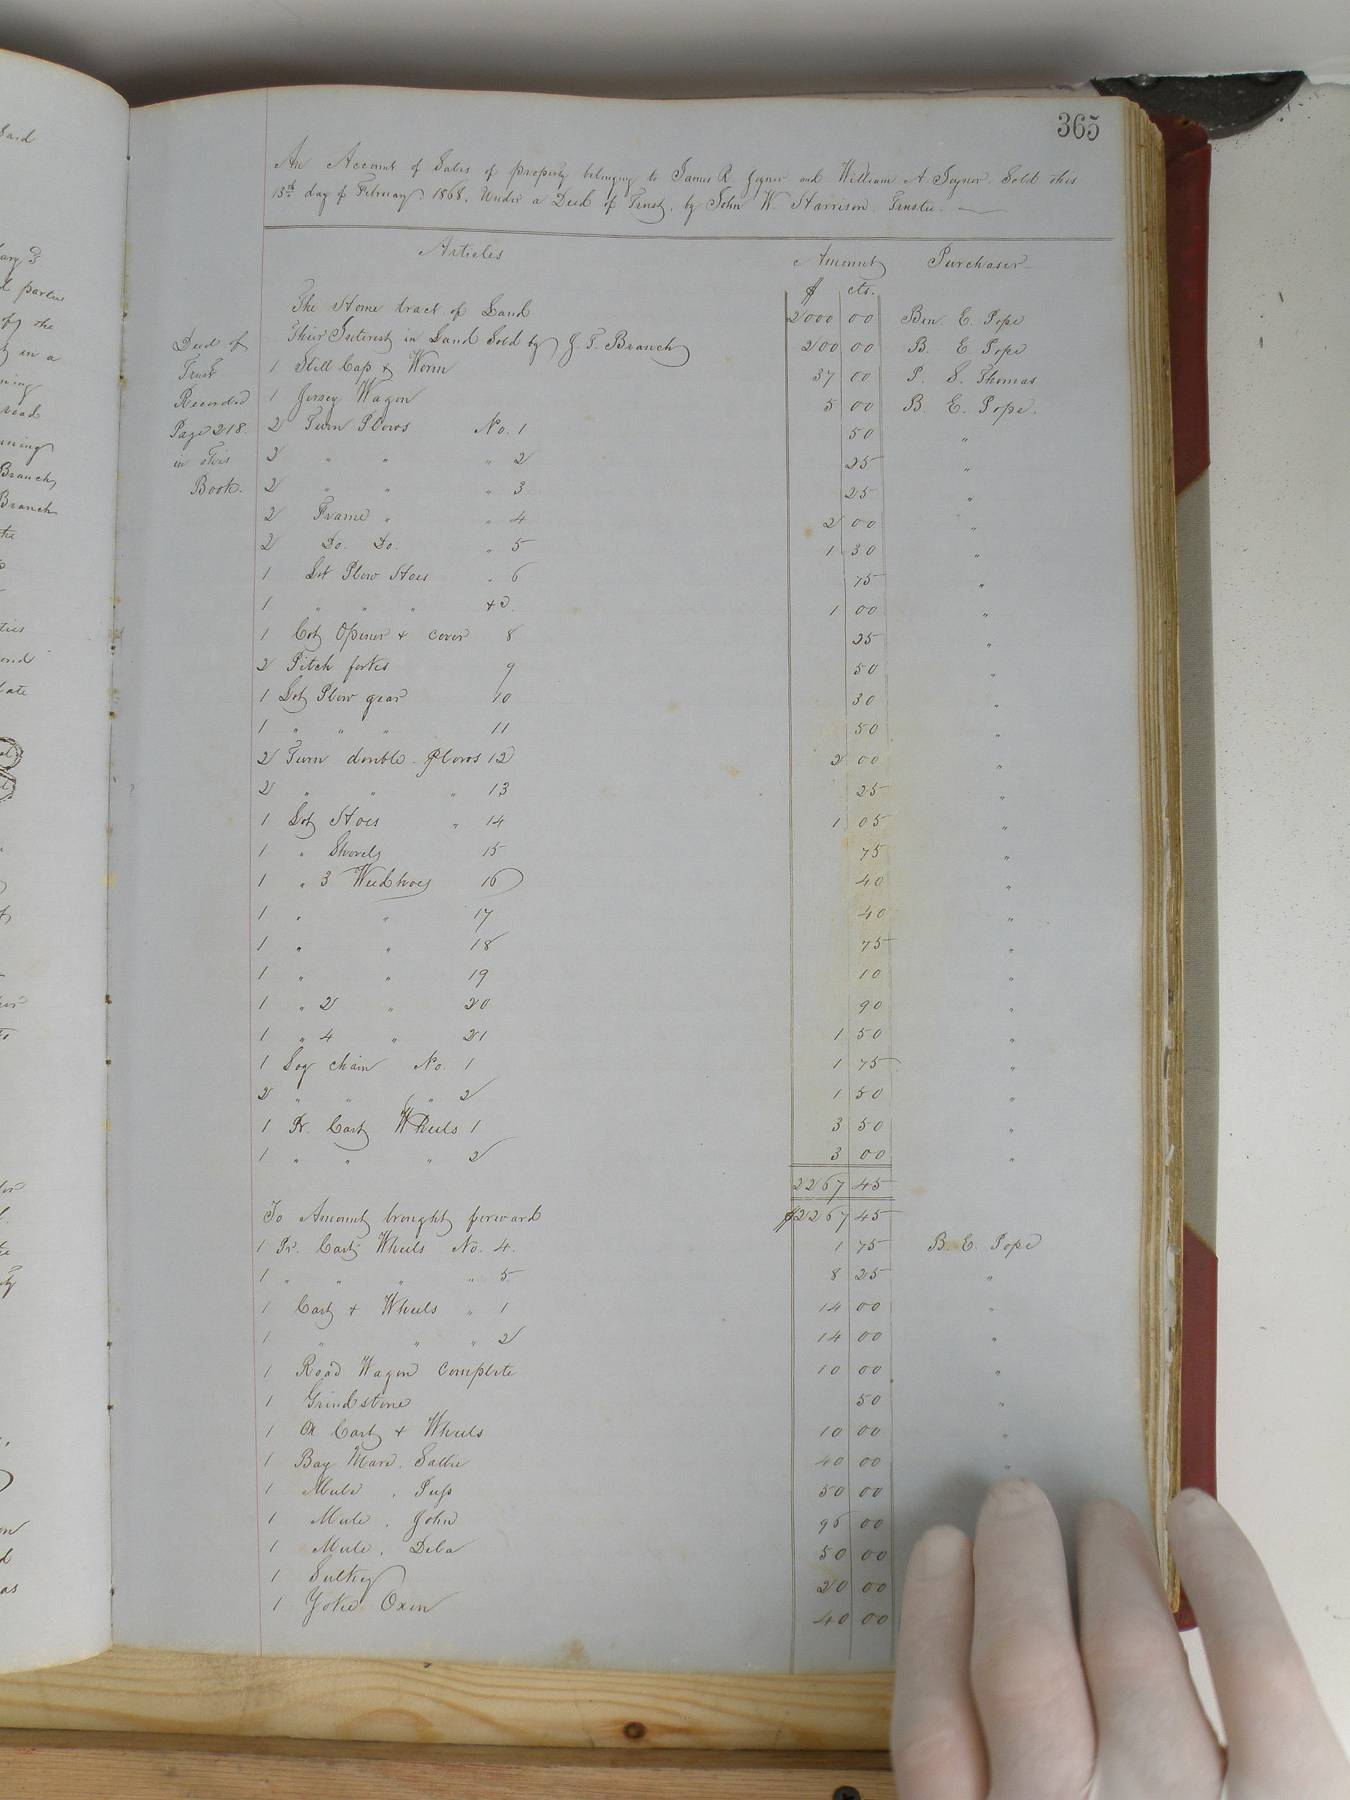 365
An Account of Sales of property belonging to James R. Joyner and William A Joyner. Sold this
13th day of February 1868. Under a Deed of Trust, by John W. Harrison. Trustee.
Articles Amount Purchaser
$ cts.
The Home tract of Land 2000 00 Ben. E. Pope
Their Interest in Land Sold by J. T. Branch 200 00 B. E. Pope
1 Still Cap & Worm 37 00 P. S. Thomas
1 Jersey Wagon 5 00 B. E. Pope.
2 Turn Plows No. 1 50 "
2 " " " 2 25 "
2 " " " 3 25 "
2 Frame " " 4 2 00 "
2 Do. Do. " 5 1 30 "
1 Lot Plow Hoes " 6 75 "
1 " " " 1 00 "
1 Cot Opener & cover 8 25 "
2 Pitch forkes 9 50 "
1 Lot Plow gear 10 30 "
1 " " " 11 50 "
2 Turn double Plows 12 2 00 "
2 " " " 13 25 "
1 Lot Hoes " 14 1 05 "
1 " Shovels 15 75 "
1 " 3 Weedhoes 16 40 "
1 " " 17 40 "
1 " " 18 75 "
1 " " 19 10 "
1 " 2 " 20 90 "
1 " 4 " 21 1 50 "
1 Log chain No. 1 1 75 "
2 " " " 2 1 50 "
1 Pr. Cart Wheels 1 3 50 "
1 " " " 2 3 00 "
2267 45
To Amount brought forward $2267 45
1 Pr. Cart Wheels No. 4. 1 75 B. E. Pope
1 " " " " 5 8 25 "
1 Cart & Wheels " 1 14 00 "
1 " " " 2 14 00 "
1 Road Wagon complete 10 00 "
1 Grindstone 50 "
1 Ox Cart & Wheels 10 00 "
1 Bay Mare. Sallie 40 00 "
1 Mule . Puss 50 00
1 Mule . John 95 00
1 Mule . Deba 50 00
1 Sulkey 20 00
1 Yoke Oxen 40 00
Deed of
Trust
Recorded
Page 218.
in this
Book.